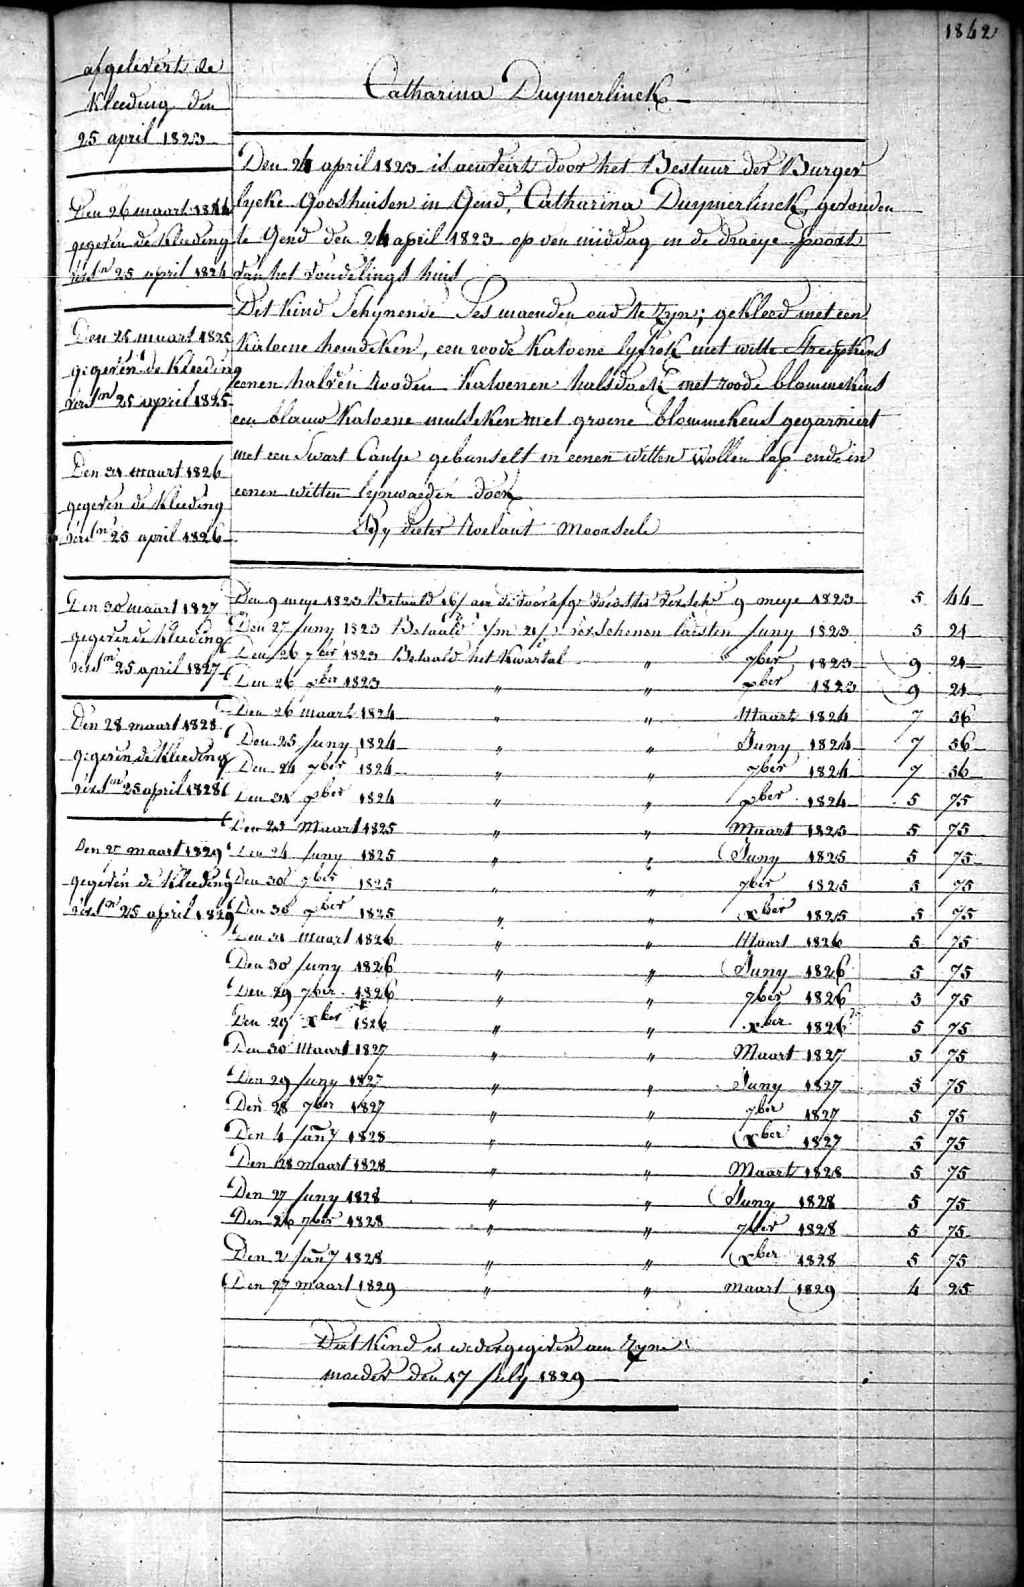 1842
afgelevert de
Kleeding den
25 april 1823
Den 26 maart 1824
gegeven de Kleeding
vers.n 25 april 1824
Den 25 maart 1825
gegeven de Kleeding
vers.n 25 april 1825
Den 31 maart 1826
gegeven de Kleeding
vers.n 25 april 1826
Den 30 maart 1827
gegeven de Kleeding
vers.n 25 april 1827
Den 28 maart 1828
gegeven de Kleeding
vers.n 25 april 1828
Den 27 maart 1829
gegeven de Kleeding
vers.n 25 april 1829
Catharina Duymerlinck
Den 24 april 1823 is aenveirt door het Bestuur der Burger
lycke Godshuisen in Gend, Catharina Duymerlinck, gevonden
te Gend den 24 april 1823 op den middag in de draeye poort
van het vondelings huis
Dit Kind Schynende Ses maenden oud te zyn; gekleed met een
Katoene hemdeken, een roode Katoene lyfrok met witte Streepkens
eenen halven Rooden Katoenen halsdoek met roode blommekens
een blauw Katoene mutseken met groene blommekens gegarniert
met een Swart Cantje gebunselt in eenen witten wollen lap ende in
eenen witten lynwaeden doek
By pieter Roelant Moorseele
Den 9 meye 1823 Betaald 16/ aen de voorafg. voedster versch. 9 meye 1823 5 44
Den 27 Juny 1823 Betaald 1/m 21/ verschenen laesten Juny 1823 5 21
Den 26 7ber 1823 Betaald het Kwartal " 7ber 1823 9 21
Den 26 xber 1823 " " xber 1823 9 21
Den 26 maart 1824 " " Maart 1824 7 56
Den 25 Juny 1824 " " Juny 1824 7 56
Den 24 7ber 1824 " " 7ber 1824 7 56
Den 31 xber 1824 " " xber 1824 5 75
Den 25 Maart 1825 " " Maart 1825 5 75
Den 24 Juny 1825 " " Juny 1825 5 75
Den 30 7ber 1825 " " 7ber 1825 5 75
Den 30 xber 1825 " " xber 1825 5 75
Den 31 maart 1826 " " Maart 1826 5 75
Den 30 Juny 1826 " " Juny 1826 5 75
Den 29 7ber 1826 " " 7ber 1826 5 75
Den 29 xber 1826 " " xber 1826 5 75
Den 30 Maart 1827 " " Maart 1827 5 75
Den 29 Juny 1827 " " Juny 1827 5 75
Den 28 7ber 1827 " " 7ber 1827 5 75
Den 4 Jany 1828 " " xber 1827 5 75
Den 28 maart 1828 " " Maart 1828 5 75
Den 27 Juny 1828 " " Juny 1828 5 75
Den 26 7ber 1828 " " 7ber 1828 5 75
Den 2 Jany 1828 " " xber 1828 5 75
Den 27 maart 1829 " " maart 1829 4 25
Dit Kind is wedergegeven aen zyne
moeder den 17 July 1829